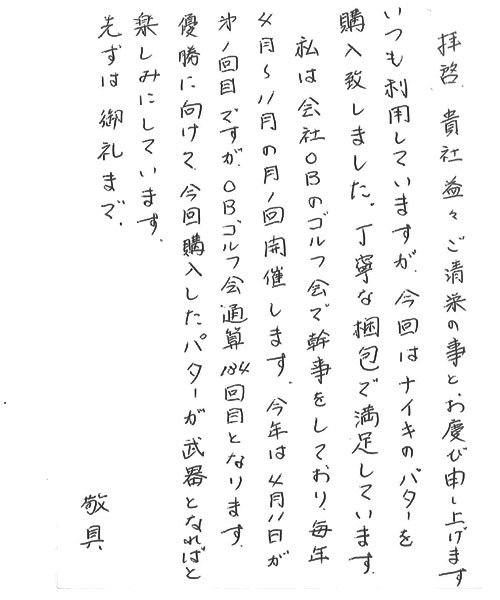 拝啓、貴社益々ご清栄の事とお慶び申し上げます
いつも利用していますが、今回はナイキのパターを
購入致しました。丁寧な梱包で満足しています。
私は会社OBのゴルフ会で幹事をしており、毎年
4月〜11月の月1回開催します。今年は4月11日が
才1回目ですが、OBゴルフ会通算184回目となります。
優勝に向けて、今回購入したパターが武器となればと
楽しみにしています。
先ずは御礼まで。
敬具